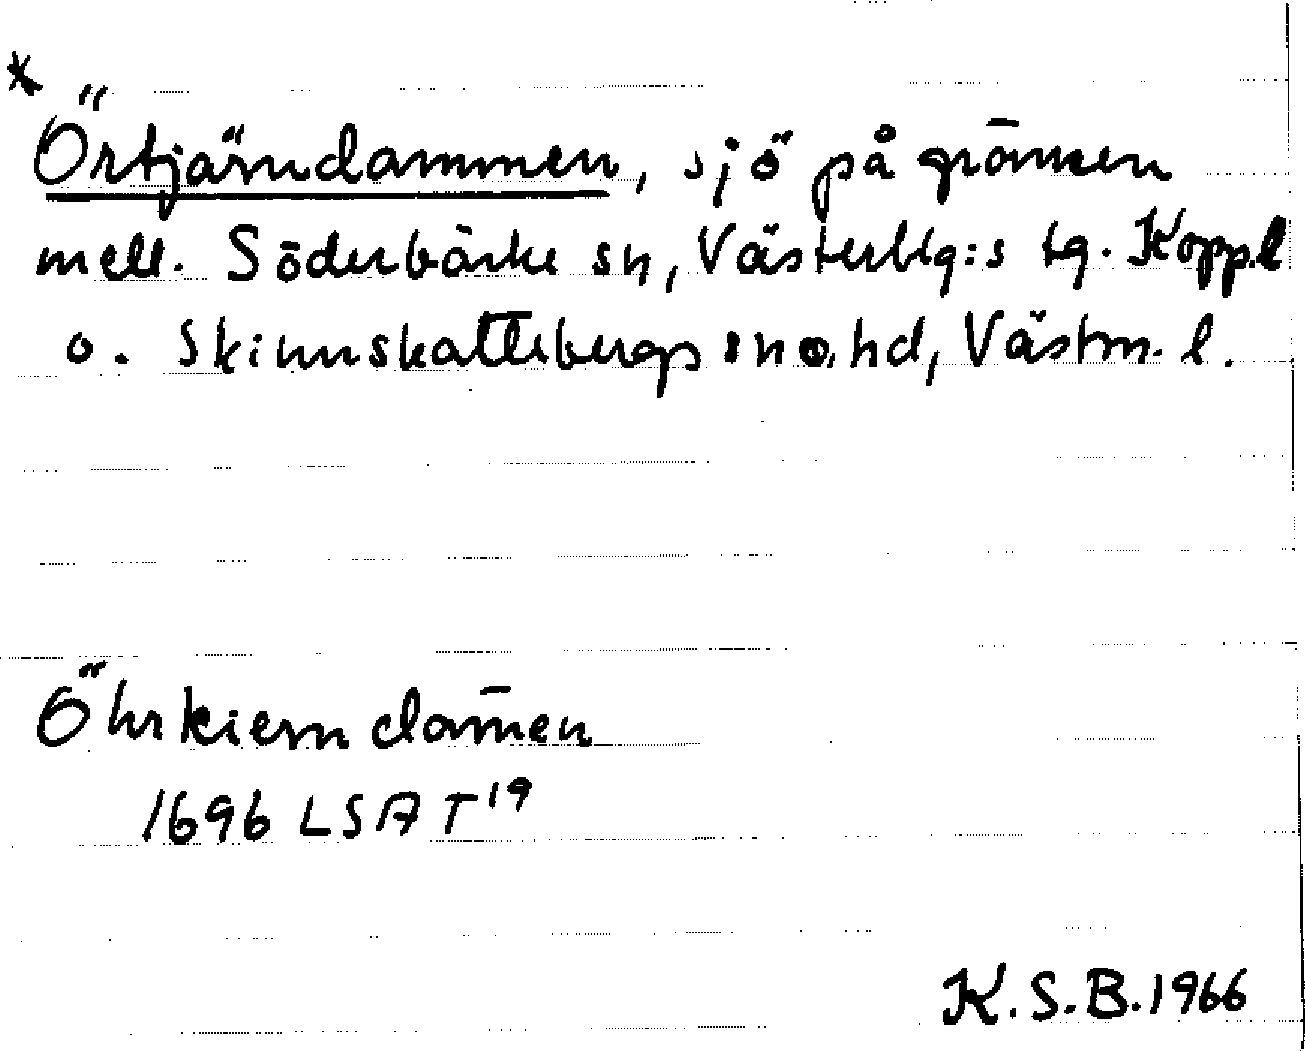 *
Örtjärndammen, sjö på gränsen
mell. Söderbärke sn, Västerbg:s tg. Kopp.l
o. Skinnskattebergs sn o. hd, Västm. l.
Öhrkiern dam̄en
1696 LSA T19
K.S.B. 1966